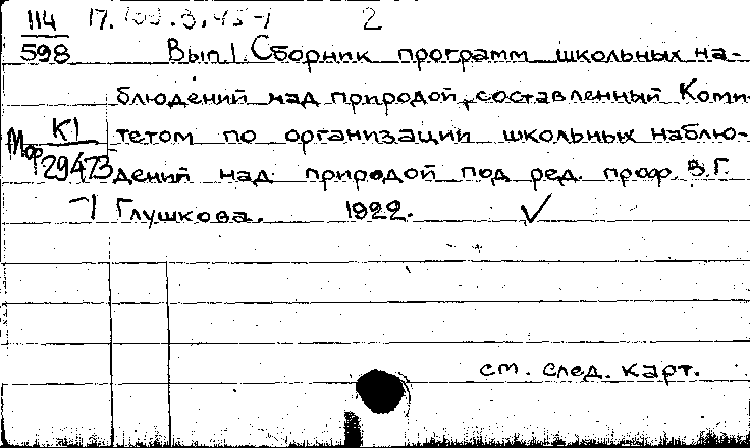 114 17. 2
598 Вып 1. Сборник программ школьных на-
блюдений над природой, составленный Коми-
К1 тетом по организации школьных наблю-
Мор 29473 дений над природой под ред. проф. В.Г.
-1 Глушкова. 1922. ✓
см. след. карт.